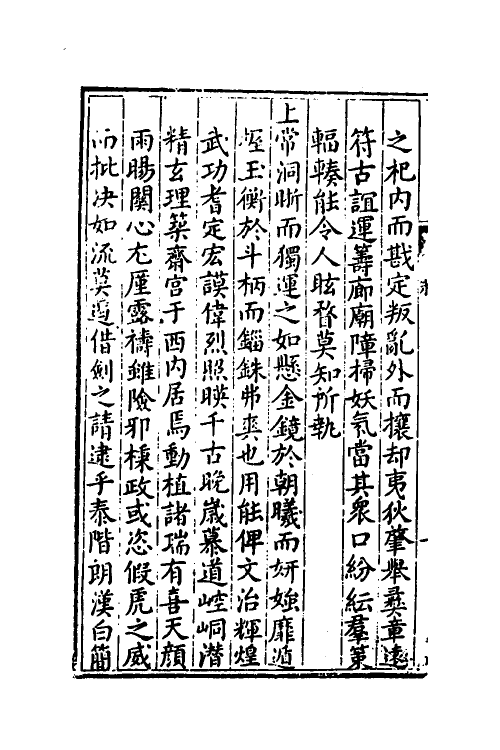 之杞内而戡定叛亂外而攘却夷狄肇舉彛章遠
符古誼運籌廊廟障掃妖氣當其衆口紛紜羣策
輻輳能令人眩瞀莫知所執
上常洞晰而獨運之如懸金鏡於朝曦而妍媸靡遁
握玉衡於斗柄而錙銖弗爽也用能俾文治輝煌
武功耆定宏謨偉烈照暎千古晚嵗慕道崆峒潛
精玄理築齋宫于西内居焉動植諸瑞有喜天顔
雨暘關心尢厪露禱雖險邪檁政或恣假虎之威
而批决如流莫遏借劍之請逮乎泰階朗漢白簡